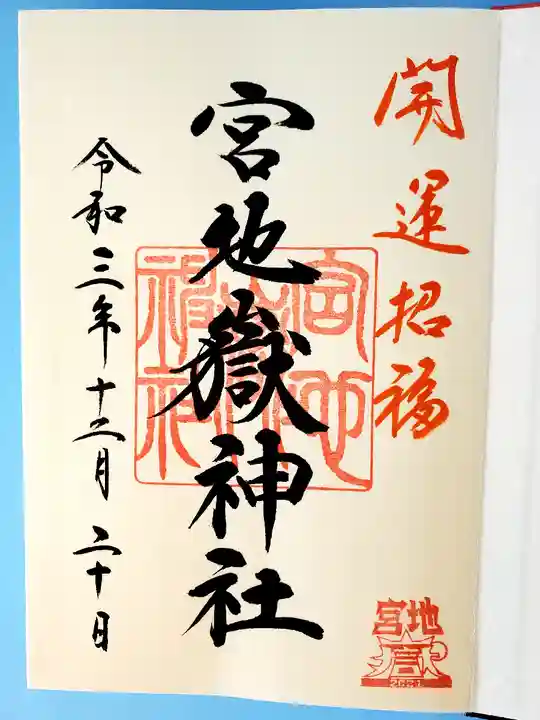 開運招福
宮地嶽神社
令和三年十二月二十日
宮地嶽神社
宮地
2021